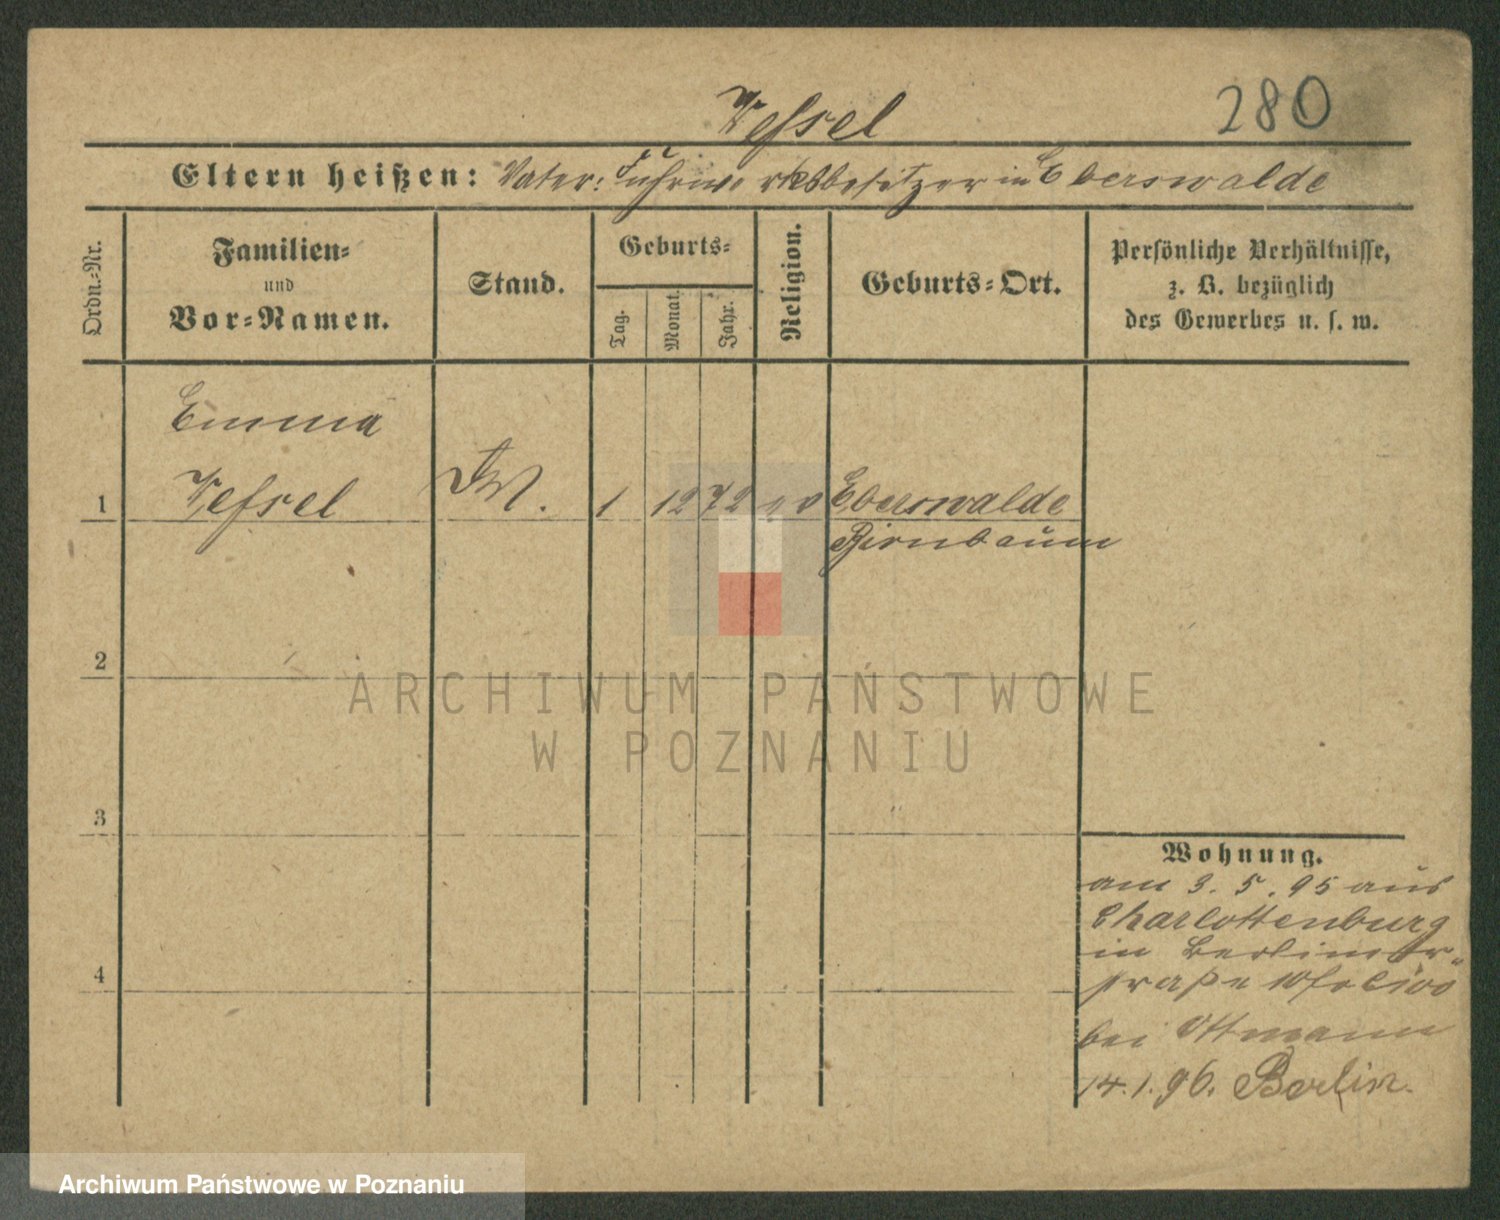 Wessel
280
Eltern heißen: Vater: Fuhrwerksbesitzer in Eberswalde
Ordn.-Nr.
Familien-
und
Vor-Namen.
Stand.
Geburts-
Tag.
Monat.
Jahr.
Religion.
Geburts-Ort.
Persönliche Verhältnisse,
z. B. bezüglich
des Gewerbes u. s. w.
Emma
1 Wessel 1 12 72 Eberswalde
Birnbaum
2
3
4
Wohnung.
am 3. 5. 95 aus
Charlottenburg
in Berliner-
straße
bei Ottmann
14.1.96. Berlin.
ARCHIWUM PAŃSTWOWE
W POZNANIU
Archiwum Państwowe w Poznaniu